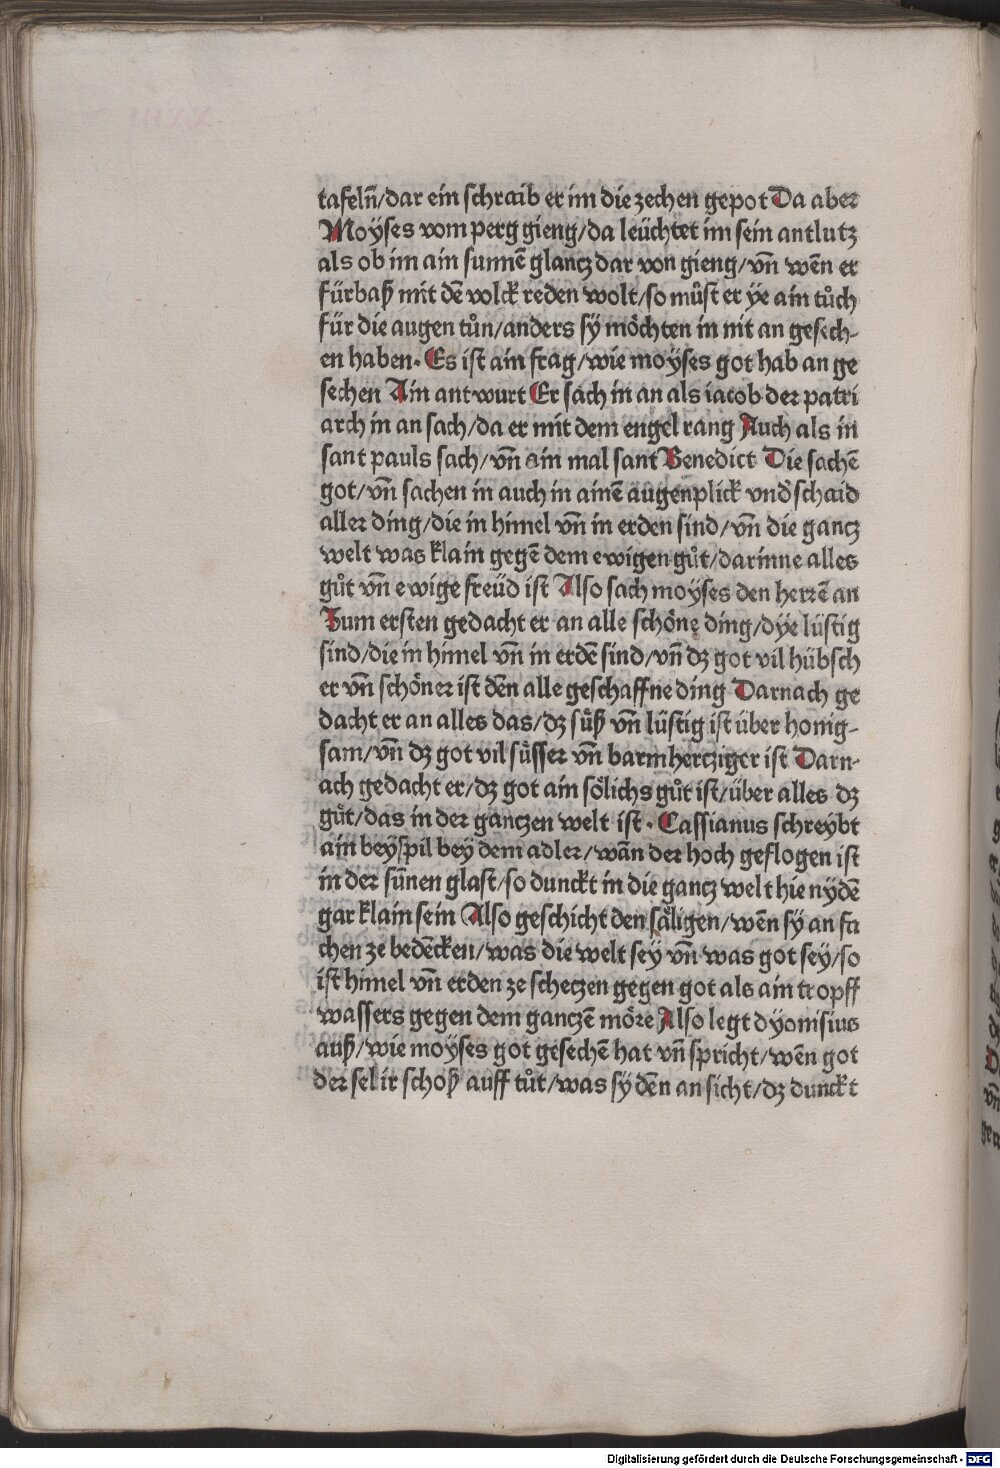 tafeln̄/dar ein schraib er im die zechen gepot Da aber
Moÿses vom perg gieng/da leüchtet im sein antlutz
als ob im ain sunnē glancz dar von gieng/vn̄ wēn er
fürbaß mit dē volck reden wolt/so můst er ÿe ain tůch
für die augen tůn/anders sÿ möchten in nit an gesech-
en haben. Es ist ain frag/wie moÿses got hab an ge
sechen Ain antwurt Er sach in an als iacob der patri
arch in an sach/da er mit dem engel rang Auch als in
sant pauls sach/vn̄ ain mal sant Benedict Die sachē
got/vn̄ sachen in auch in ainē augenplick vnd̕schaid
aller ding/die in himel vn̄ in erden sind/vn̄ die gancz
welt was klain gegē dem ewigen gůt/darinne alles
gůt vn̄ ewige freüd ist Also sach moÿses den herrē an
Zum ersten gedacht er an alle schöne ding/dÿe lüstig
sind/die in himel vn̄ in erdē sind/vn̄ dz got vil hübsch
er vn̄ schöner ist dēn alle geschaffne ding Darnach ge
dacht er an alles das/dz süß vn̄ lüstig ist über honig-
sam/vn̄ dz got vil süsser vn̄ barmhercziger ist Darn-
ach gedacht er/dz got ain sölichs gůt ist/über alles dz
gůt/das in der ganczen welt ist. Cassianus schreÿbt
ain beÿspil beÿ dem adler/wān der hoch geflogen ist
in der sūnen glast/so dunckt in die gancz welt hie nÿdē
gar klain sein Also geschicht den säligen/wēn sÿ an fa
chen ze bedēcken/was die welt seÿ vn̄ was got seÿ/so
ist himel vn̄ erden ze scheczen gegen got als ain tropff
wassers gegen dem ganczē möre Also legt dÿonisius
auß/wie moÿses got gesechē hat vn̄ spricht/wēn got
der sel ir schoß auff tůt/was sÿ dēn an sicht/dz dunckt
Digitalisierung gefördert durch die Deutsche Forschungsgemeinschaft - DFG